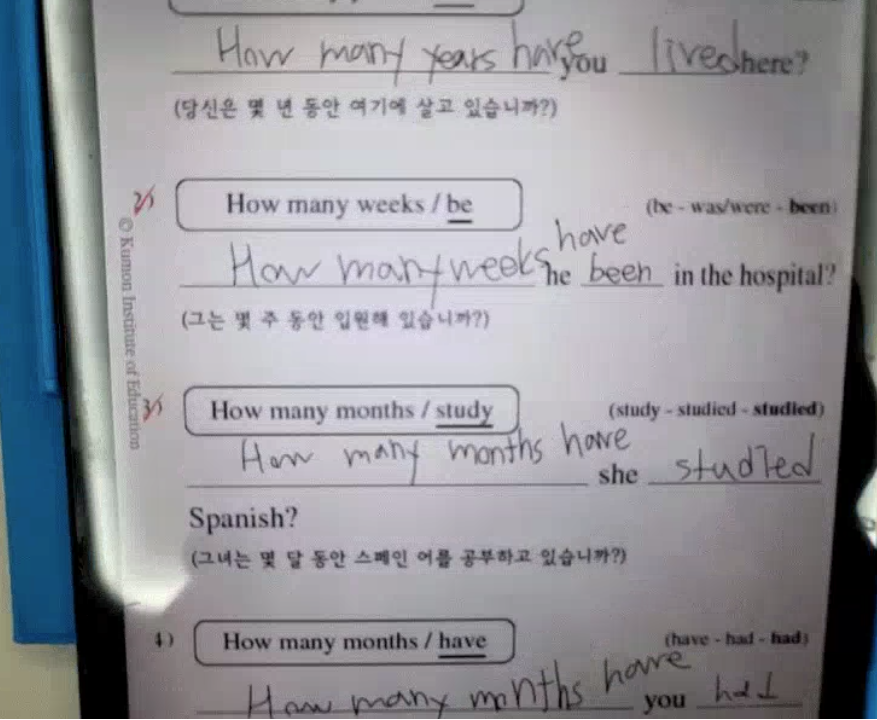 How many years have you lived here?
(당신은 몇 년 동안 여기에 살고 있습니까?)
2) How many weeks / be (be - was/were - been)
How many weeks have he been in the hospital?
(그는 몇 주 동안 입원해 있습니까?)
© Kumon Institute of Education
3) How many months / study (study - studied - studied)
How many months have she studied
Spanish?
(그녀는 몇 달 동안 스페인 어를 공부하고 있습니까?)
4) How many months / have (have - had - had)
How many months have you had